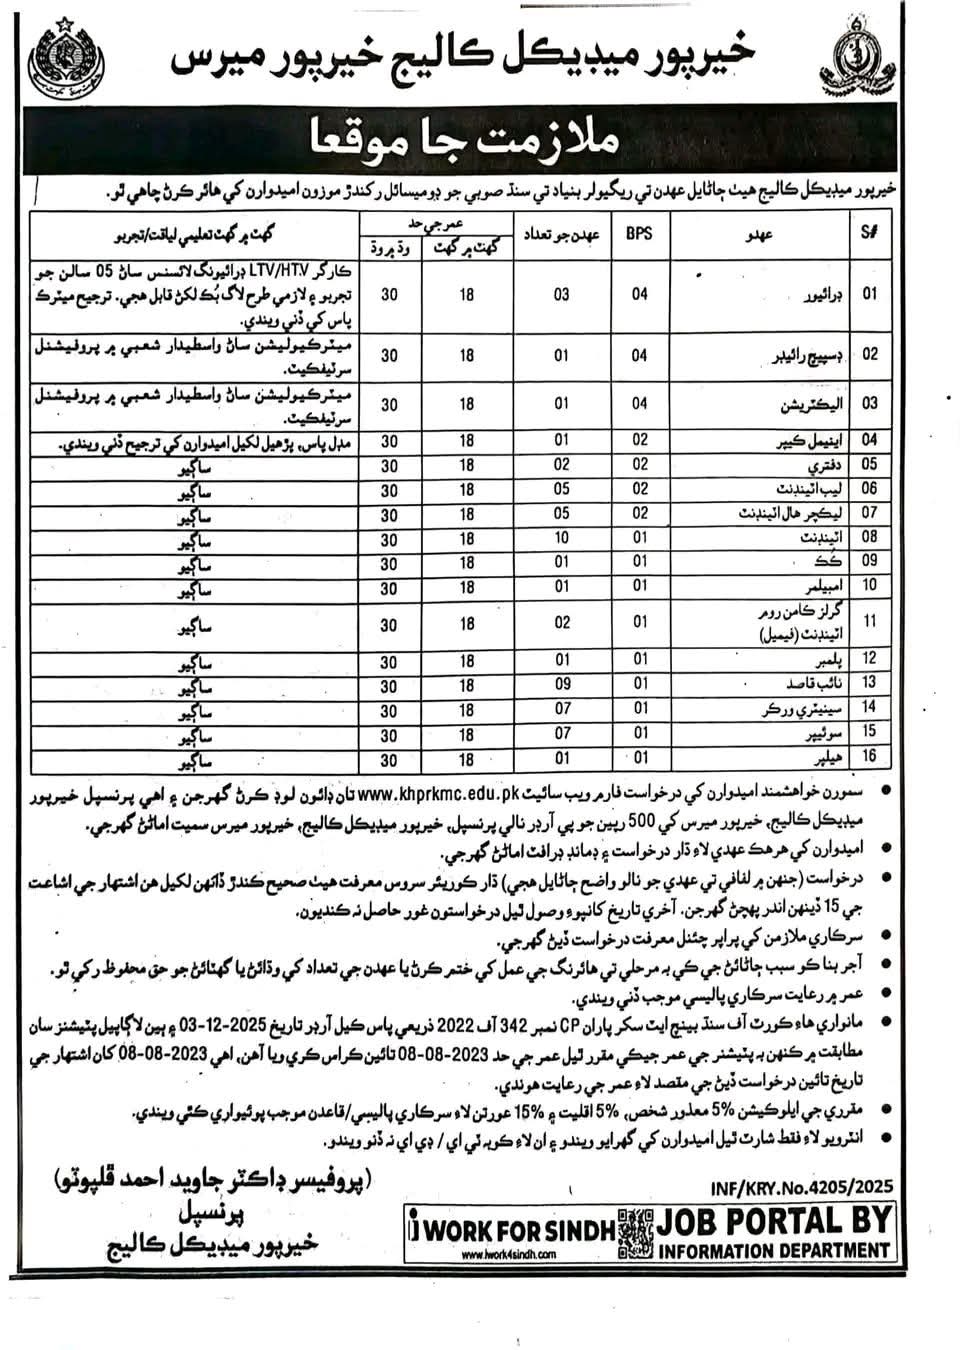 خيرپور ميڊيڪل ڪاليج خيرپور ميرس
ملازمت جا موقعا
خيرپور ميڊيڪل ڪاليج هيٺ ڄاڻايل عهدن تي ريگيولر بنياد تي سنڌ صوبي جو ڊوميسائل رکندڙ موزون اميدوارن کي هائر ڪرڻ چاهي ٿو.
S# عهدو BPS عهدن جو تعداد عمر جي حد گهٽ ۾ گهٽ وڌ ۾ وڌ گهٽ ۾ گهٽ تعليمي لياقت/تجربو
01 ڊرائيور 04 03 18 30 ڪارگر LTV/HTV ڊرائيونگ لائسنس ساڻ 05 سالن جو
تجربو ۽ لازمي طرح لاگ بُڪ لکڻ قابل هجي. ترجيح ميٽرڪ
پاس کي ڏني ويندي.
02 ڊسپيچ رائيڊر 04 01 18 30 ميٽرڪيوليشن ساڻ واسطيدار شعبي ۾ پروفيشنل
سرٽيفڪيٽ.
03 اليڪٽريشن 04 01 18 30 ميٽرڪيوليشن ساڻ واسطيدار شعبي ۾ پروفيشنل
سرٽيفڪيٽ.
04 اينيمل ڪيپر 02 01 18 30 مڊل پاس، پڙهيل لکيل اميدوارن کي ترجيح ڏني ويندي.
05 دفتري 02 02 18 30 ساڳيو
06 ليب اٽينڊنٽ 02 05 18 30 ساڳيو
07 ليڪچر هال اٽينڊنٽ 02 05 18 30 ساڳيو
08 اٽينڊنٽ 01 10 18 30 ساڳيو
09 ڪُڪ 01 01 18 30 ساڳيو
10 امبيلمر 01 01 18 30 ساڳيو
11 گرلز ڪامن روم
اٽينڊنٽ (فيميل) 01 02 18 30 ساڳيو
12 پلمبر 01 01 18 30 ساڳيو
13 نائب قاصد 01 09 18 30 ساڳيو
14 سينيٽري ورڪر 01 07 18 30 ساڳيو
15 سوئيپر 01 07 18 30 ساڳيو
16 هيلپر 01 01 18 30 ساڳيو
• سمورن خواهشمند اميدوارن کي درخواست فارم ويب سائيٽ www.khprkmc.edu.pk تان ڊائون لوڊ ڪرڻ گهرجن ۽ اهي پرنسپل خيرپور
ميڊيڪل ڪاليج، خيرپور ميرس کي 500 رپين جو پي آرڊر نالي پرنسپل، خيرپور ميڊيڪل ڪاليج، خيرپور ميرس سميت اماڻڻ گهرجي.
• اميدوارن کي هر هڪ عهدي لاءِ ڌار درخواست ۽ ڊمانڊ ڊرافٽ اماڻڻ گهرجي.
• درخواست (جنهن ۾ لفافي تي عهدي جو نالو واضح ڄاڻايل هجي) ڌار ڪوريئر سروس معرفت هيٺ صحيح ڪندڙ ڏانهن لکيل هن اشتهار جي اشاعت
جي 15 ڏينهن اندر پهچڻ گهرجن. آخري تاريخ کانپوءِ وصول ٿيل درخواستون غور حاصل نه ڪنديون.
• سرڪاري ملازمن کي پراپر چئنل معرفت درخواست ڏيڻ گهرجي.
• آجر بنا ڪو سبب ڄاڻائڻ جي ڪي به مرحلي تي هائرنگ جي عمل کي ختم ڪرڻ يا عهدن جي تعداد کي وڌائڻ يا گهٽائڻ جو حق محفوظ رکي ٿو.
• عمر ۾ رعايت سرڪاري پاليسي موجب ڏني ويندي.
• مانواري هاءِ ڪورٽ آف سنڌ بينچ ايٽ سکر پاران CP نمبر 342 آف 2022 ذريعي پاس ڪيل آرڊر تاريخ 2025-12-03 ۽ ٻين لاڳاپيل پٽيشنز سان
مطابقت ۾ ڪنهن به پٽيشنر جي عمر جيڪي مقرر ٿيل عمر جي حد 2023-08-08 تائين ڪراس ڪري ويا آهن، اهي 2023-08-08 کان اشتهار جي
تاريخ تائين درخواست ڏيڻ جي مقصد لاءِ عمر جي رعايت هوندي.
• مقرري جي ايلوڪيشن %5 معذور شخص، %5 اقليت ۽ %15 عورتن لاءِ سرڪاري پاليسي/قاعدن موجب پوئيواري ڪئي ويندي.
• انٽرويو لاءِ فقط شارٽ ٿيل اميدوارن کي گهرايو ويندو ۽ ان لاءِ ڪو به ٽي اي / ڊي اي نه ڏنو ويندو.
(پروفيسر ڊاڪٽر جاويد احمد ڦلپوٽو)
پرنسپل
خيرپور ميڊيڪل ڪاليج
INF/KRY.No.4205/2025
i WORK FOR SINDH
www.iwork4sindh.com
JOB PORTAL BY
INFORMATION DEPARTMENT